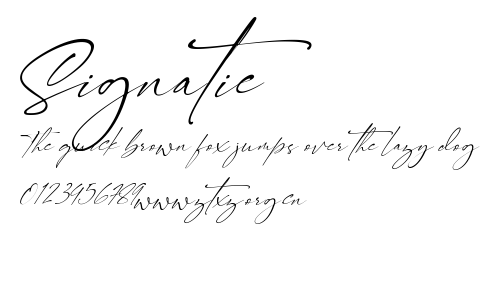 Signatic
The quick brown fox jumps over the lazy dog
0123456789wwwztxzorgcn